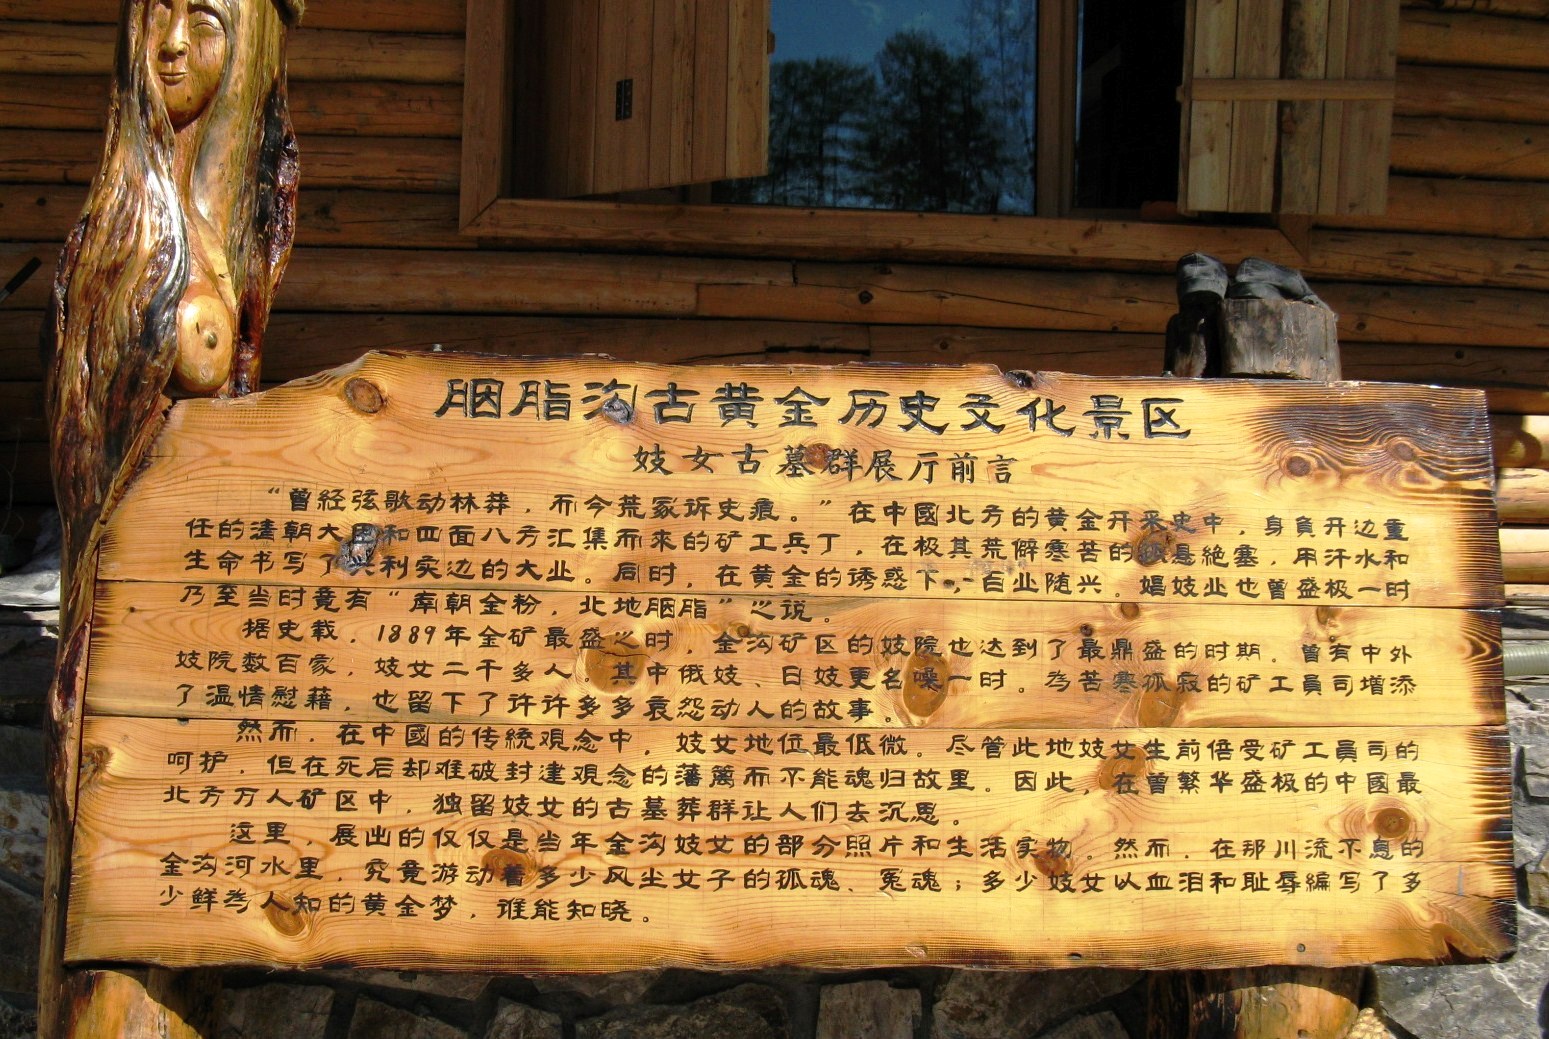 胭脂沟古黄金历史文化景区
妓女古墓群展厅前言
“曾经弦歌动林莽，而今荒冢诉史痕。”在中國北方的黄金开采史中，身負开边重
任的逹朝大臣和四面八方汇集而來的矿工兵丁，在极其荒僻寒苦的孤悬絶塞，用汗水和
生命书写了兴利实边的大业。同时，在黄金的诱惑下，百业随兴。娼妓业也曾盛极一时
乃至当时竟有“南朝金粉，北地胭脂”之说。
据史载，1889年金矿最盛之时，金沟矿区的妓院也达到了最鼎盛的时期，曾有中外
妓院数百家，妓女二千多人。其中俄妓、日妓更名噪一时。為苦寒孤寂的矿工員司增添
了温情慰藉，也留下了许许多多哀怨动人的故事。
然而，在中國的传統观念中，妓女地位最低微。尽管此地妓女生前倍受矿工員司的
呵护，但在死后却难破封建观念的藩篱而不能魂归故里。因此，在曾繁华盛极的中國最
北方万人矿区中，独留妓女的古墓葬群让人们去沉思。
这里，展出的仅仅是当年金沟妓女的部分照片和生活实物。然而，在那川流不息的
金沟河水里，究竟游动着多少风尘女子的孤魂、冤魂；多少妓女以血泪和耻辱編写了多
少鲜為人知的黄金梦，谁能知晓。